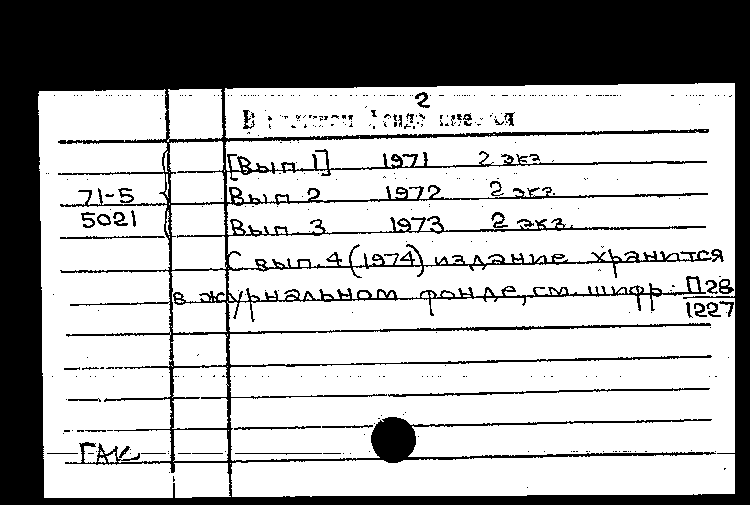 2
В книжном фонде имеется
[Вып. 1] 1971 2 экз.
71-5 Вып. 2 1972 2 экз.
5021 Вып. 3 1973 2 экз.
С вып. 4 (1974) издание хранится
в журнальном фонде, см. шифр: П28
1227
ГАК